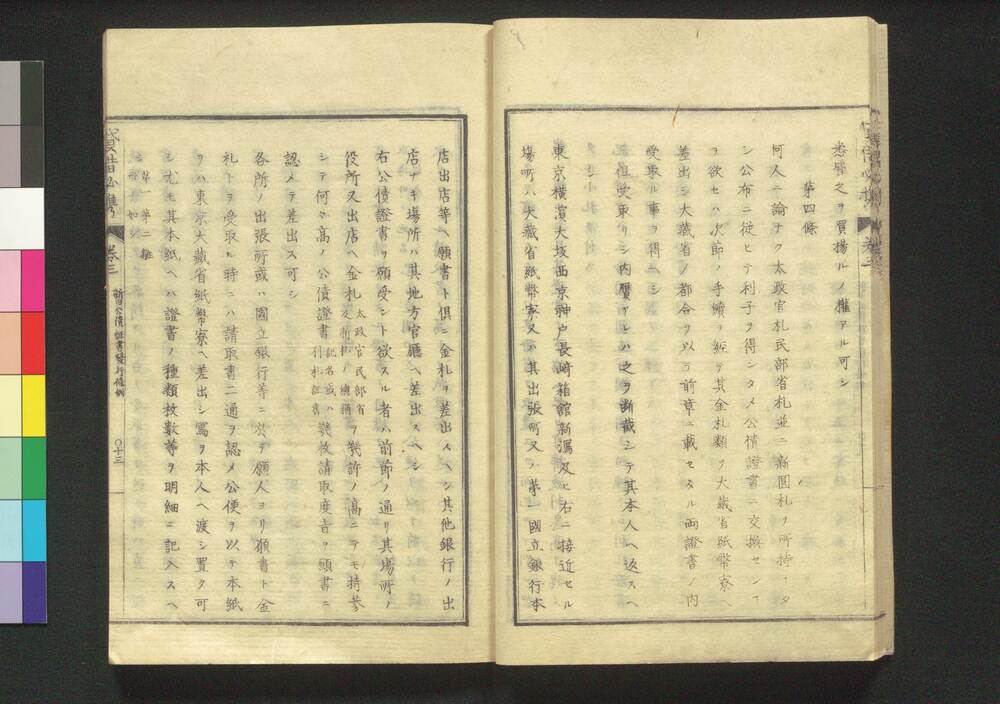 悉皆之ヲ買揚ルノ權アル可シ
第四條
何人ニ論ナク太政官札民部省札並ニ新圓札ヲ所持シタ
シ公布ニ從ヒテ利子ヲ得ンタメ公債證書ニ交換セン
ヲ欲セハ次節ノ手續ヲ經テ其金札類ヲ大藏省紙幣寮ヘ
差出シ大藏省ノ都合ヲ以テ前章ニ載セタル両證書ノ内
受取ル事ヲ得ヘシ
但受取リシ内贋アレハ之ヲ断截シテ其本人ヘ返スヘ
東京橫濱大坂西京神戸長崎箱館新潟及ヒ右ニ接近セル
場所ハ大藏省紙幣寮又ハ其出張所又ハ第一國立銀行本
店出店等ヘ願書ト俱ニ金札ヲ差出スヘシ其他銀行ノ出
店ナキ場所ハ其地方官廳ヘ差出スヘシ
右公債證書ヲ願受ント欲スル者ハ前節ノ通リ其場所ノ
役所又出店ヘ金札太政官民部省及新札ノ總稱ヲ幾許ノ高ニテモ持參
シテ何々高ノ公債證書記名或ハ利札証書幾枚請取度旨ヲ願書ニ
認メテ差出ス可シ
各所ノ出張所或ハ國立銀行等ニ於テ願人ヨリ願書ト金
札トヲ受取ル時ニハ請取書二通ヲ認メ公便ヲ以テ本紙
ヲハ東京大藏省紙幣寮ヘ差出シ寫ヲ本人ヘ渡シ置ク可
シ尤モ其本紙ヘハ證書ノ種類枚數等ヲ明細ニ記入スヘ
シ 第一第二
如シ
貸借必携
卷三
新舊公債証書發行條例
〇十三